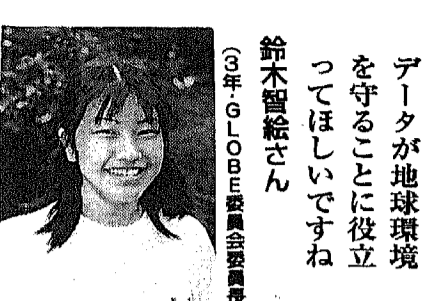 データが地球環境
を守ることに役立
ってほしいですね
鈴木智絵さん
(3年・GLOBE委員会委員長